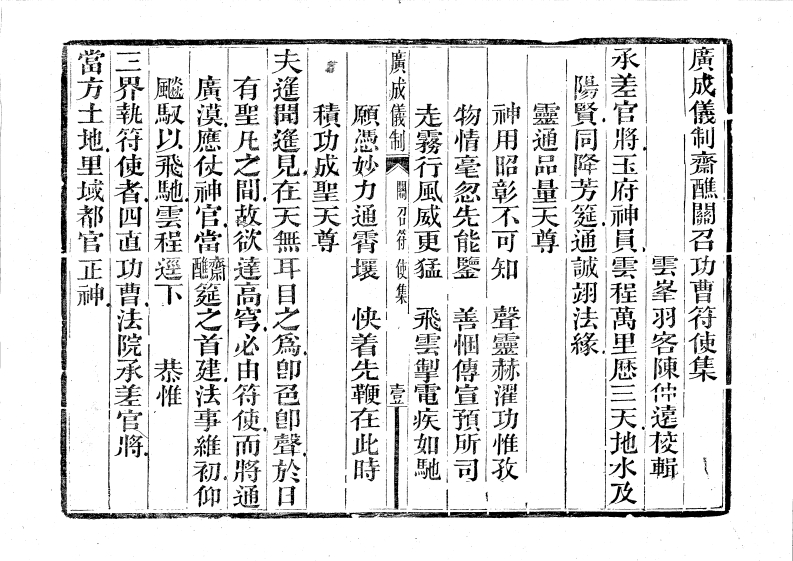 廣成儀制齋醮關召功曹符使集
雲峯羽客陳仲遠校輯
承差官將玉府神員雲程萬里歷三天地水及
陽賢同降芳筵通誠翊法緣
靈通品量天尊
神用昭彰不可知 聲靈赫濯功惟孜
物情毫忽先能鑒 善悃傳宣預所司
走霧行風威更猛 飛雲掣電疾如馳
廣成儀制 關召符使集 壹
願憑妙力通霄壤 快着先鞭在此時
積功成聖天尊
夫遙聞遙見在天無耳目之爲卽色卽聲於日
有聖凡之間故欲達高穹必由符使而將通
廣漠應仗神官當齋醮筵之首建法事維初仰
飈馭以飛馳雲程逕下 恭惟
三界執符使者四直功曹法院承差官將
當方土地里域都官正神